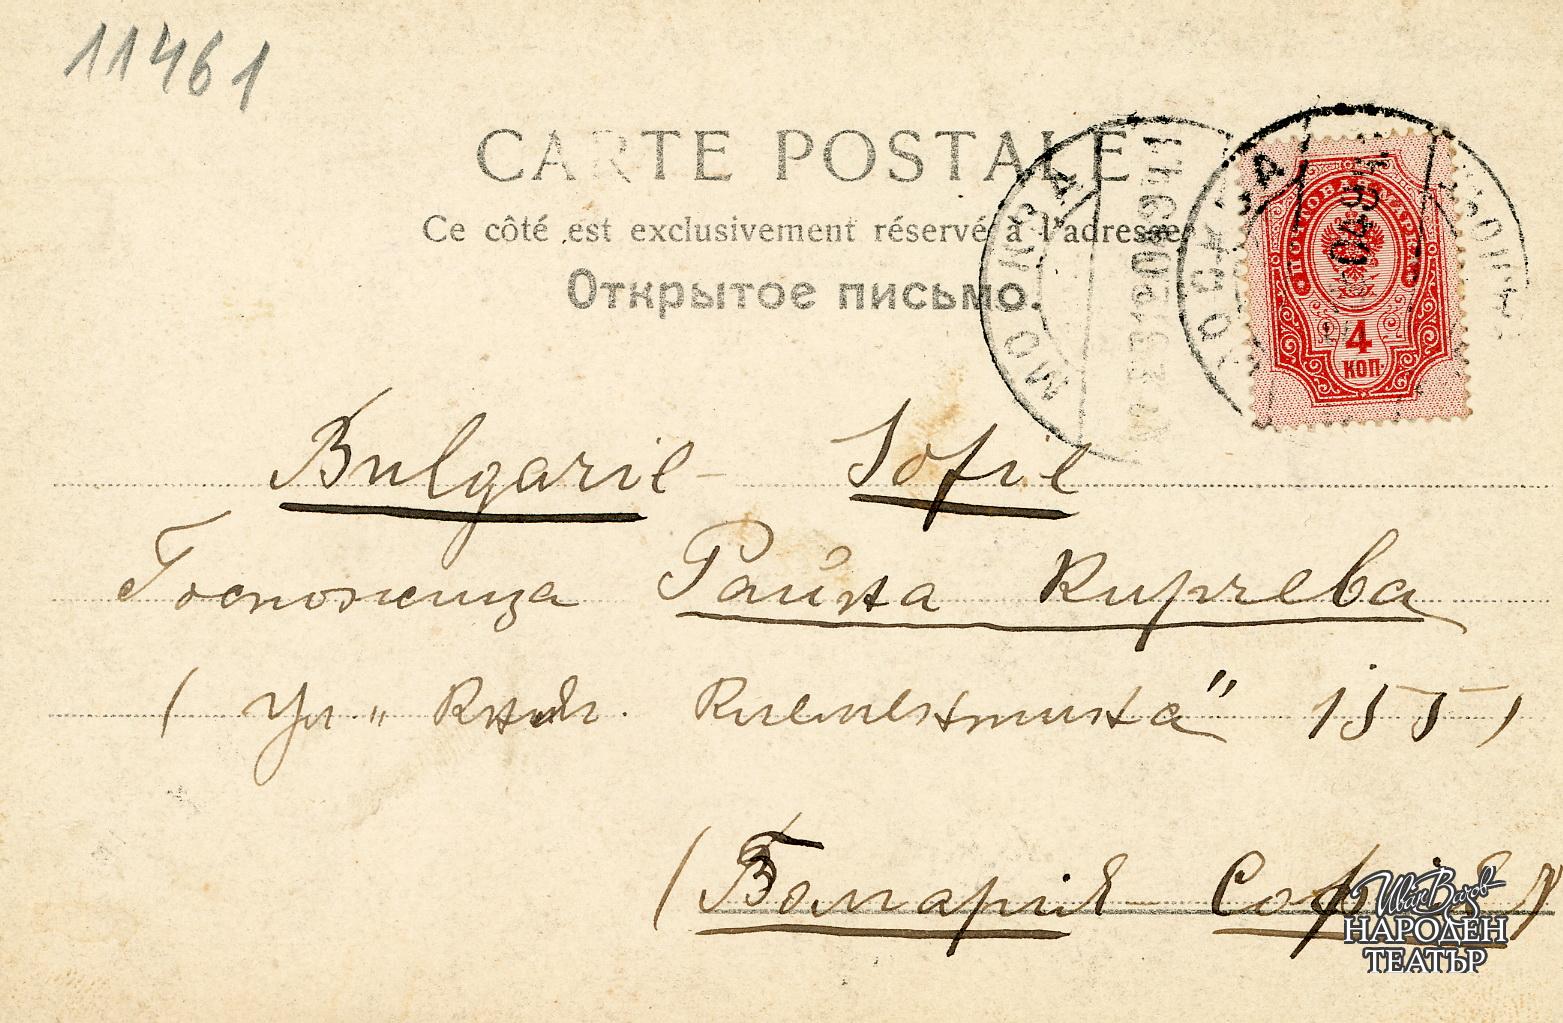 11461
CARTE POSTALE
Ce côté est exclusivement réservé à l'adresse
Открытое письмо.
МОСКВА
МОСКВА
ПОЧТОВАЯ МАРКА
4
КОП.
Bulgarie - Sofie
Госпожица Райна Кирчева
( Ул „ Княг. Клементина" 155 )
( Болгарія София )
Иван Вазов
НАРОДЕН
ТЕАТЪР